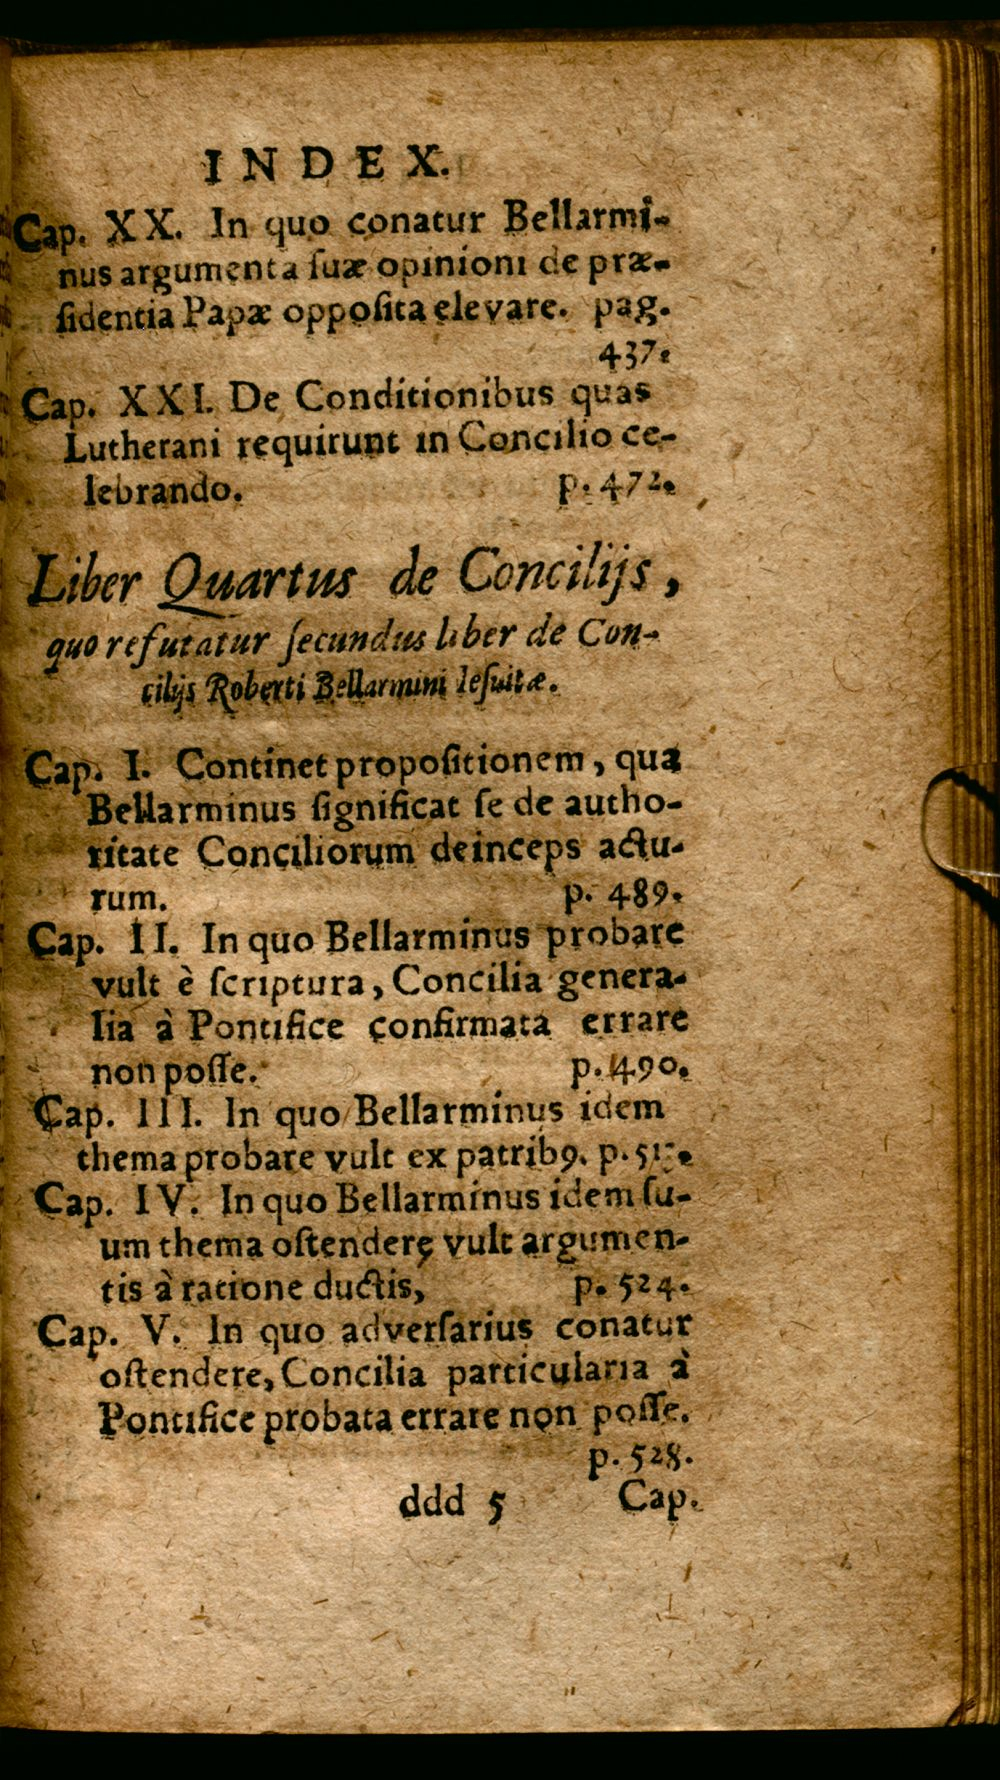 INDEX.
Cap. XX. In quo conatur Bellarmi-
nus argumenta ſuæ opinioni de præ-
ſidentia Papæ oppoſita elevare. pag.
437.
Cap. XXI. De Conditionibus quas
Lutherani requirunt in Concilio ce-
lebrando. p. 472.
Liber Quartus de Concilijs,
quo refutatur ſecundus liber de Con-
cilijs Roberti Bellarmini Ieſuitæ.
Cap. I. Continet propoſitionem, qua
Bellarminus ſignificat ſe de autho-
ritate Conciliorum deinceps actu-
rum. p. 489.
Cap. II. In quo Bellarminus probare
vult è ſcriptura, Concilia genera-
lia à Pontifice confirmata errare
non poſſe. p. 490.
Cap. III. In quo Bellarminus idem
thema probare vult ex patribꝰ. p.
Cap. IV. In quo Bellarminus idem ſu-
um thema oſtendere vult argumen-
tis à ratione ductis, p. 524.
Cap. V. In quo adverſarius conatur
oſtendere, Concilia particularia à
Pontifice probata errare non poſſe.
p. 528.
ddd 5 Cap.